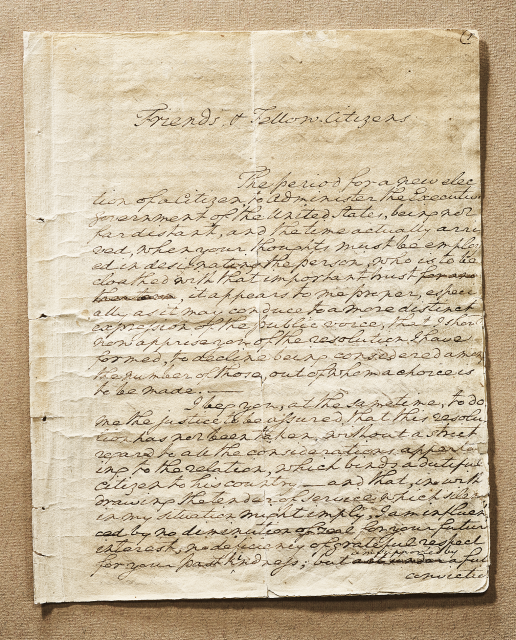 (1
Friends & Fellow-Citizens
The period for a new elec
tion of a Citizen, to Administer the Executive
government of the United States, being not
far distant, and the time actually arri
ved, when your thoughts must be employ
ed in designating the person, who is to be
cloathed with that important trust
, it appears to me proper, especi
ally as it may conduce to a more distinct
expression of the public voice, that I shou
now apprise you of the resolution I have
formed, to decline being considered among
the number of those, out of whom a choice is
to be made.
I beg you, at the sametime, to do
me the justice to be assured, that this resolu
tion has not been taken, without a strict
regard to all the considerations appertain
ing to the relation, which binds a dutiful
citizen to his country—and that, in with
drawing the tender of service which silence
in my situation might imply, I am influen
ced by no diminution of zeal for your future
interest, no deficiency of grateful respect
am supported by
for your past kindness; but act under a full
convictio